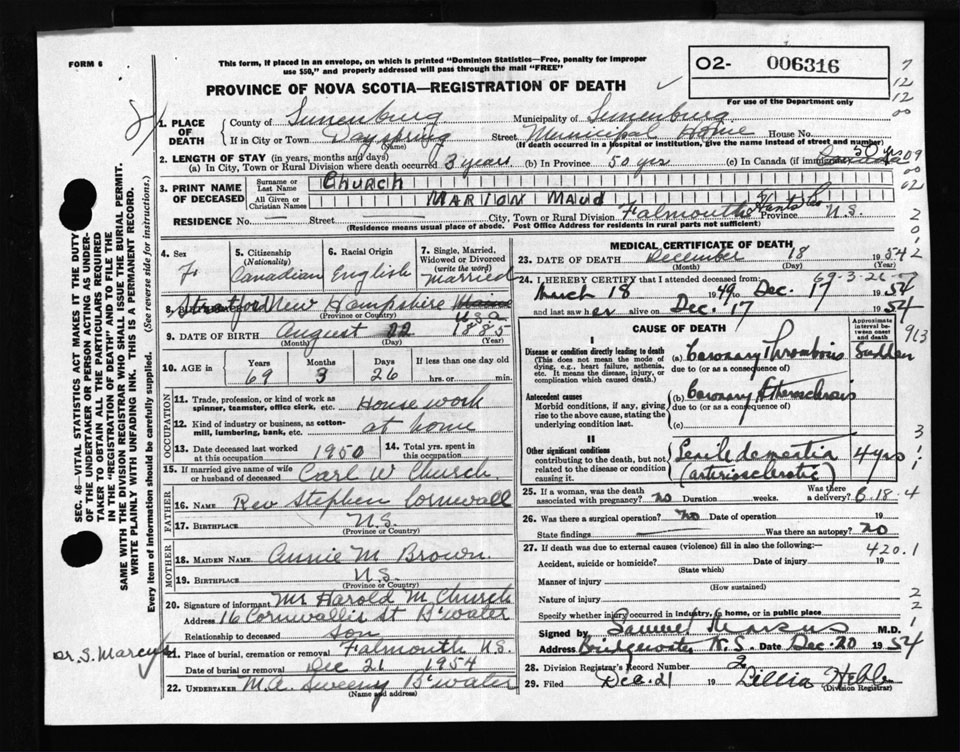 FORM 6
This form, if placed in an envelope, on which is printed "Dominion Statistics—Free, penalty for improper
use $50," and properly addressed will pass through the mail "FREE"
O2- 006316
For use of the Department only
PROVINCE OF NOVA SCOTIA—REGISTRATION OF DEATH
7
12
12
00
1. PLACE OF DEATH
County of Lunenburg Municipality of Lunenburg
If in City or Town Dayspring Street Municipal Home House No.
(Name) (If death occurred in a hospital or institution, give the name instead of street and number)
2. LENGTH OF STAY (in years, months and days)
(a) In City, Town or Rural Division where death occurred 3 years (b) In Province 50 yrs (c) In Canada (if immigrant) 50 yrs
09
00
02
3. PRINT NAME OF DECEASED
Surname or Last Name CHURCH
All Given or Christian Names MARION MAUD
RESIDENCE No. — Street City, Town or Rural Division Falmouth Hants Co Province N.S.
(Residence means usual place of abode. Post Office Address for residents in rural parts not sufficient)
4. Sex F
5. Citizenship (Nationality) Canadian
6. Racial Origin English
7. Single, Married, Widowed or Divorced (write the word) Married
8. Stratford New Hampshire U.S.A
(Province or Country)
9. DATE OF BIRTH August 22 1885
(Month) (Day) (Year)
10. AGE Years 69 Months 3 Days 26 If less than one day old hrs. or min.
OCCUPATION
11. Trade, profession, or kind of work as spinner, teamster, office clerk, etc. House work
12. Kind of industry or business, as cotton-mill, lumbering, bank, etc. at home
13. Date deceased last worked at this occupation 1950
14. Total yrs. spent in this occupation
15. If married give name of wife or husband of deceased Carl W Church
FATHER
16. NAME Rev Stephen Cornwall
17. BIRTHPLACE N.S.
(Province or Country)
MOTHER
18. MAIDEN NAME Annie M Brown.
19. BIRTHPLACE N.S.
(Province or Country)
20. Signature of informant Mr Harold M Church
Address 16 Cornwallis St B'water
Relationship to deceased Son
Dr. S. Marcus
21. Place of burial, cremation or removal Falmouth N.S.
Date of burial or removal Dec 21 1954
22. UNDERTAKER M.A. Sweeny B'water
(Name and address)
MEDICAL CERTIFICATE OF DEATH
23. DATE OF DEATH December 18 1954
(Month) (Day)
24. I HEREBY CERTIFY that I attended deceased from 69-3-26
March 18 1949 to Dec. 17 1954
and last saw her alive on Dec. 17 1954
CAUSE OF DEATH
Approximate interval between onset and death
913
I
Disease or condition directly leading to death
(This does not mean the mode of dying, e.g., heart failure, asthenia, etc. It means the disease, injury, or complication which caused death.)
(a) Coronary Thrombosis Sudden
due to (or as a consequence of)
Antecedent causes
Morbid conditions, if any, giving rise to the above cause, stating the underlying condition last.
(b) Coronary Atherosclerosis
due to (or as a consequence of)
(c)
II
Other significant conditions
contributing to the death, but not related to the disease or condition causing it.
Senile dementia (arteriosclerotic) 4 yrs
25. If a woman, was the death associated with pregnancy? no Duration weeks. Was there a delivery? 6-18-4
26. Was there a surgical operation? no Date of operation 19
State findings — Was there an autopsy? no
27. If death was due to external causes (violence) fill in also the following:— 420.1
Accident, suicide or homicide? Date of injury 19
(State which)
Manner of injury
(How sustained)
Nature of injury
Specify whether injury occurred in industry, home, or in public place
Signed by Samuel Marcus M.D.
Address Bridgewater N.S. Date Dec-20 1954
28. Division Registrar's Record Number 2
29. Filed Dec. 21 19 Lillia Hebb
(Division Registrar)
SEC. 46—VITAL STATISTICS ACT MAKES IT THE DUTY
OF THE UNDERTAKER OR PERSON ACTING AS UNDER-
TAKER TO OBTAIN ALL THE PARTICULARS REQUIRED
IN THE "REGISTRATION OF DEATH" AND TO FILE THE
SAME WITH THE DIVISION REGISTRAR WHO SHALL ISSUE THE BURIAL PERMIT.
WRITE PLAINLY WITH UNFADING INK. THIS IS A PERMANENT RECORD.
Every item of information should be carefully supplied. (See reverse side for instructions.)